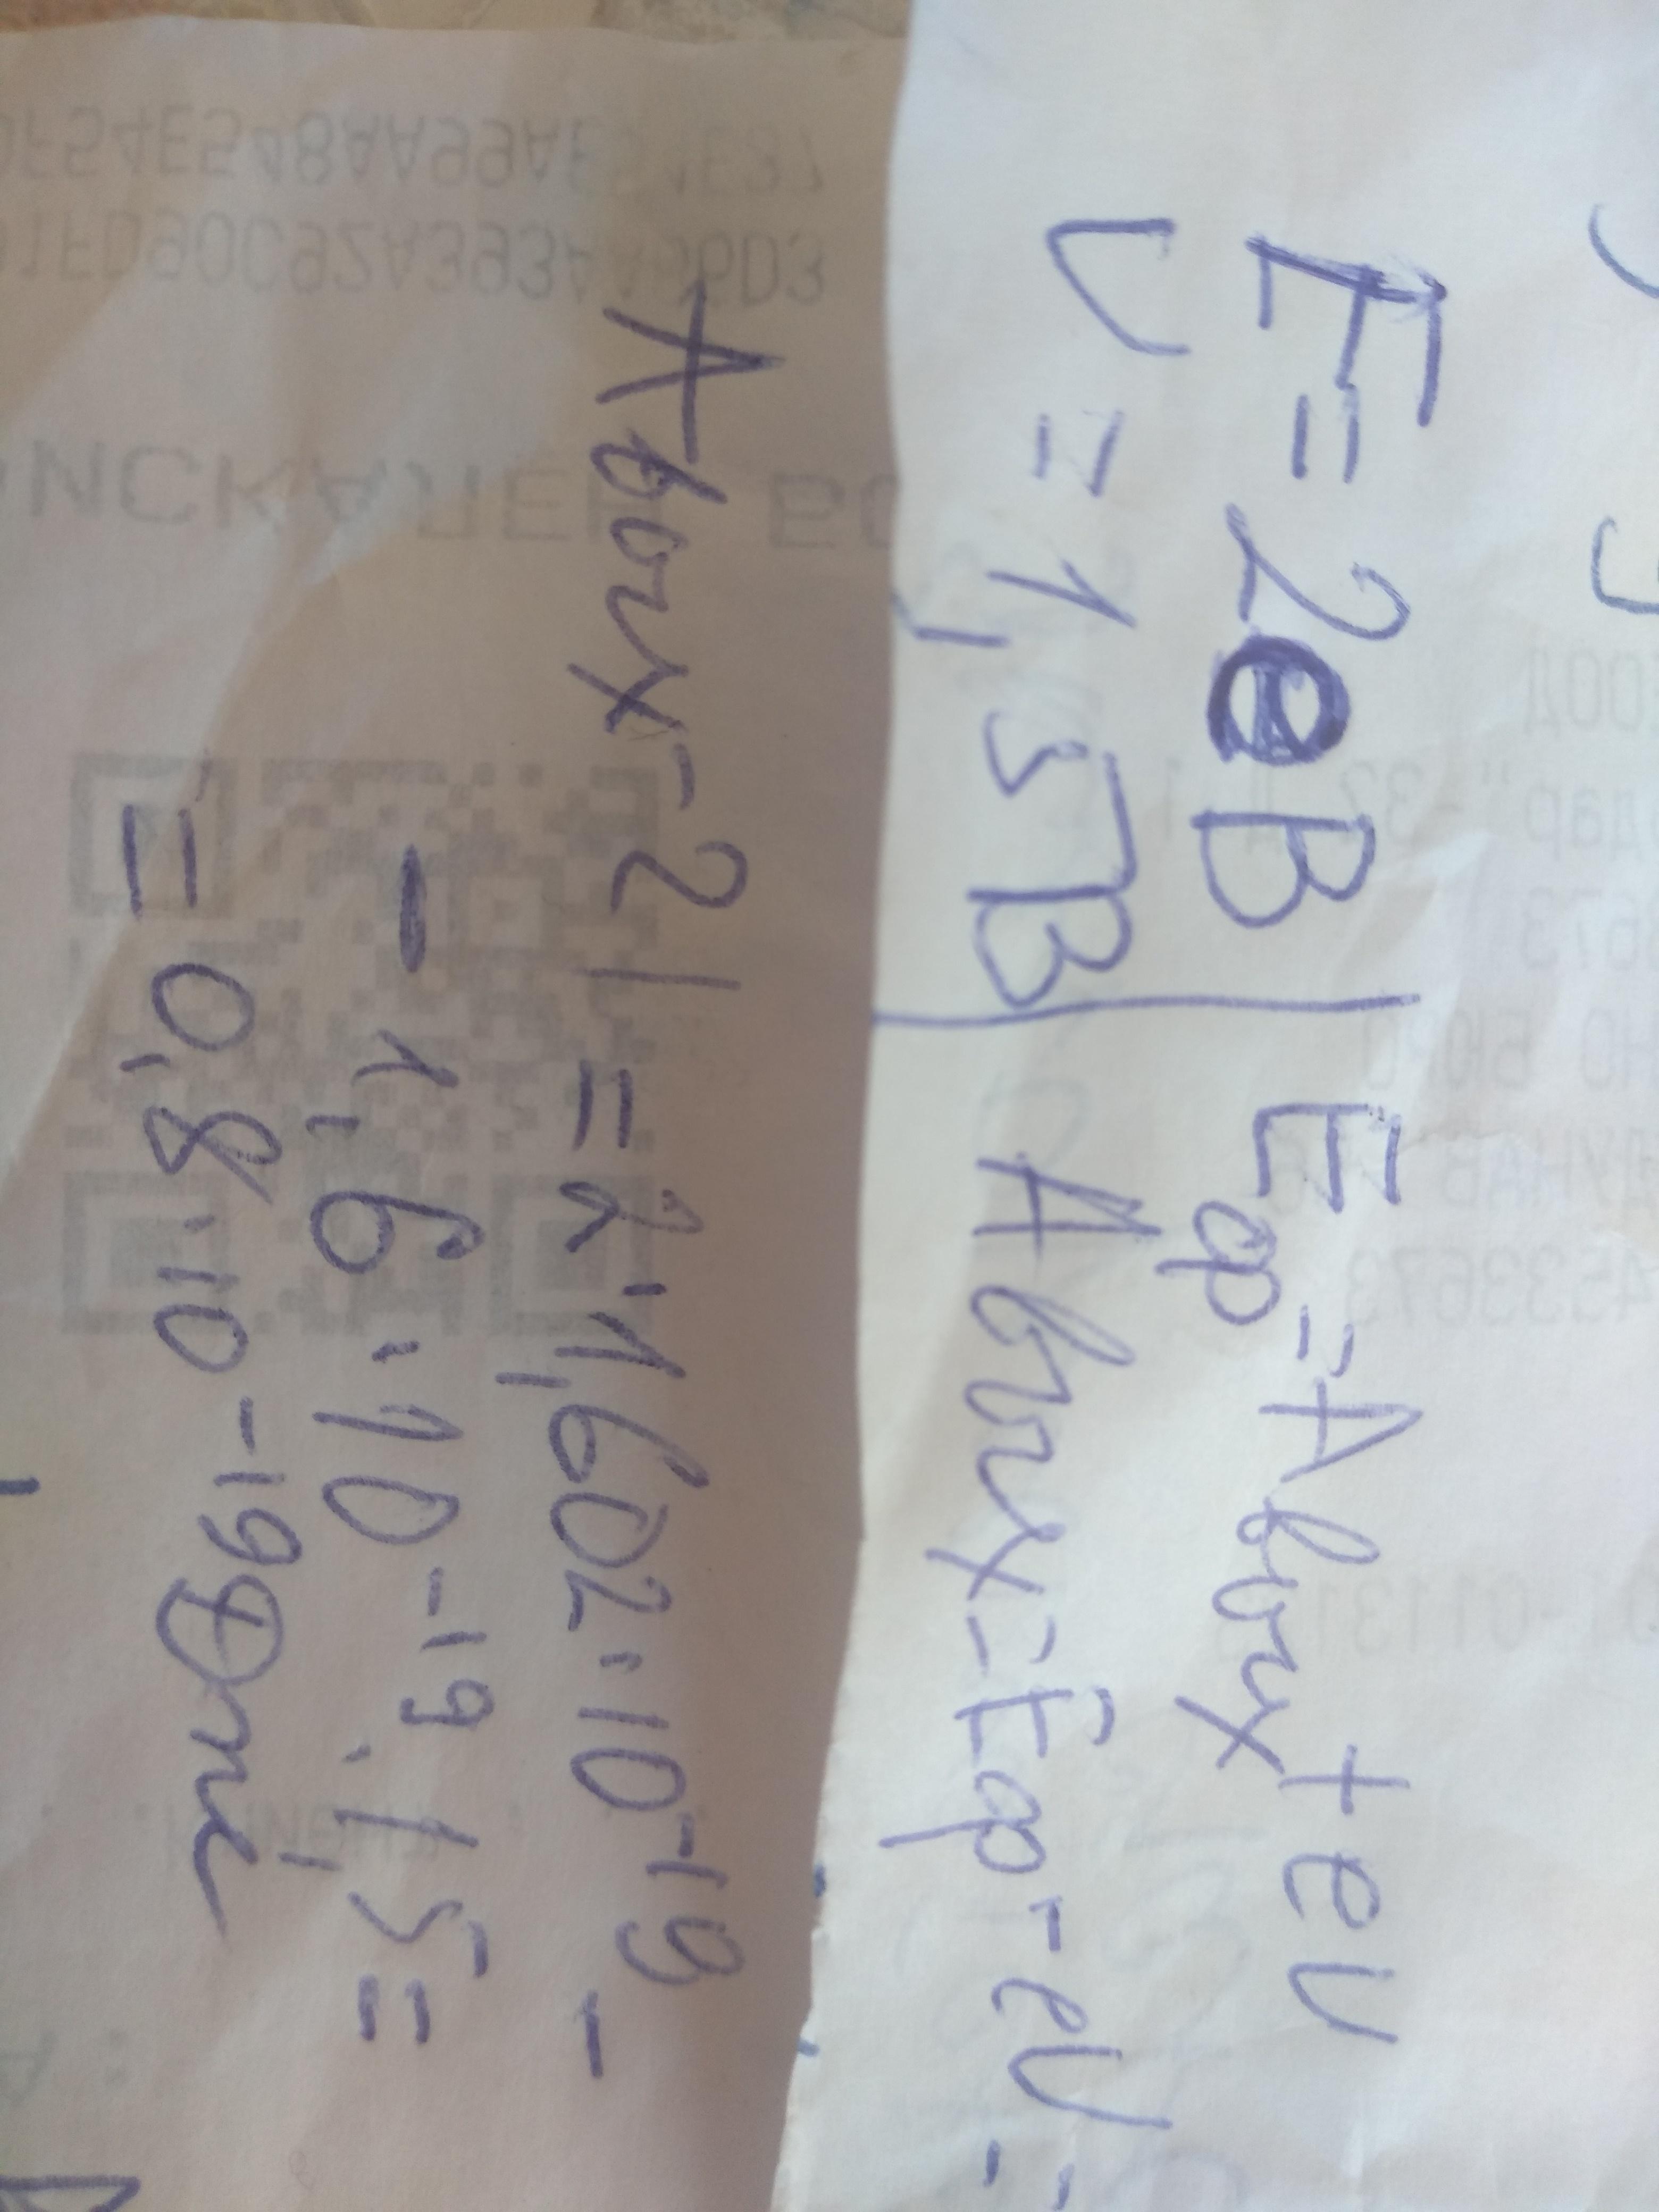 E = 2eB | Eφ = Aвих + eU
U = 1,5B | Aвих = Eφ - eU =
Aвих - 2 | = 2·1,602·10⁻¹⁹ -
- 1,6·10⁻¹⁹·1,5 =
= 0,8·10⁻¹⁹ Дж